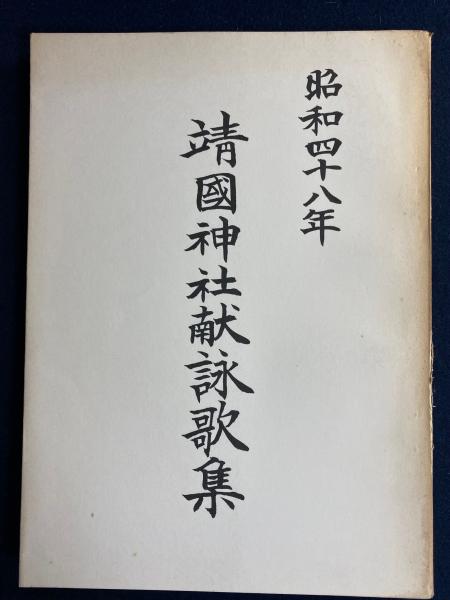 昭和四十八年
靖國神社献詠歌集